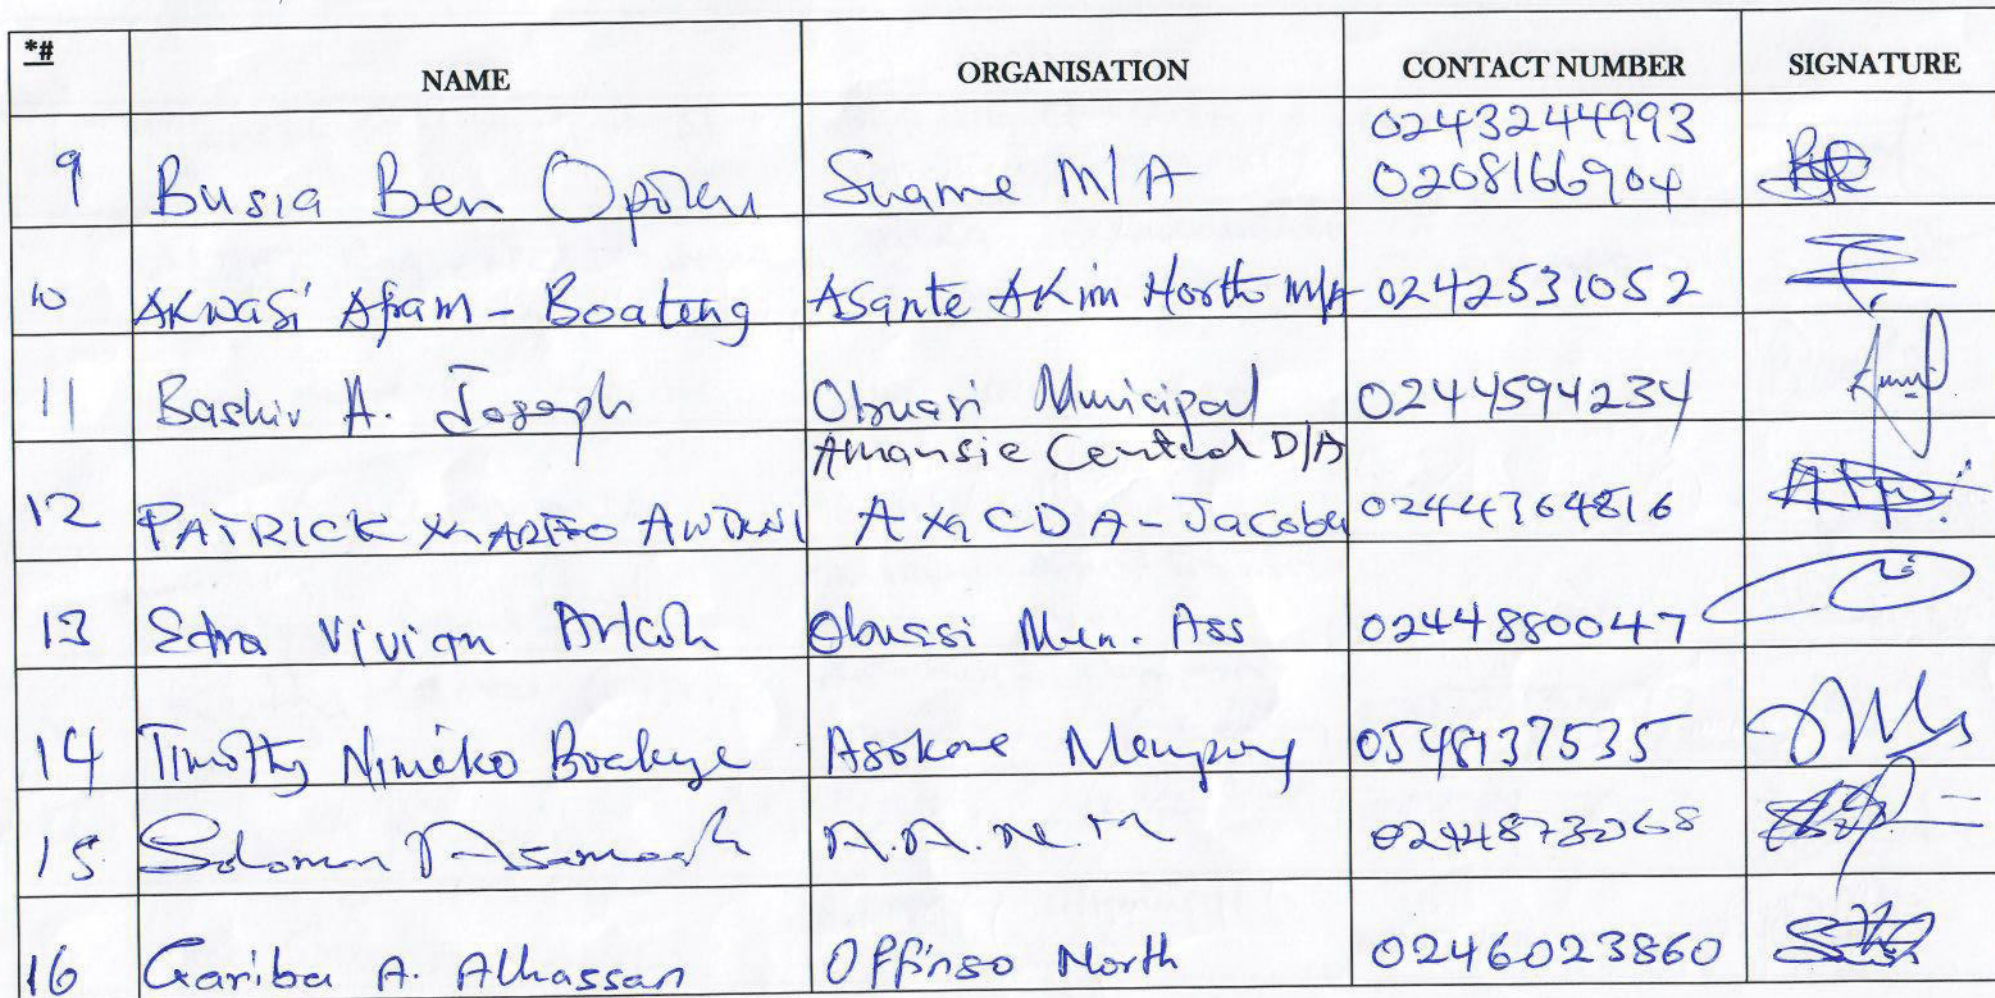 *# NAME ORGANISATION CONTACT NUMBER SIGNATURE
02432444993
9 Busia Ben Opoku Suame M/A 0208166904
10 Akwasi Afram - Boateng Asante Akim North M/A 0242531052
11 Bashir A. Joseph Obuasi Municipal 0244594234
Amansie Central D/A
12 PATRICK - Jacobu
13 Edna Vivian Arkoh Obuasi Mun. Ass 0244880047
14 Timothy Nimako Boakye Asokore Mampong 0548137535
15 Solomon Asamoah A.A.N.M
16 Gariba A. Alhassan Offinso North 0246023860